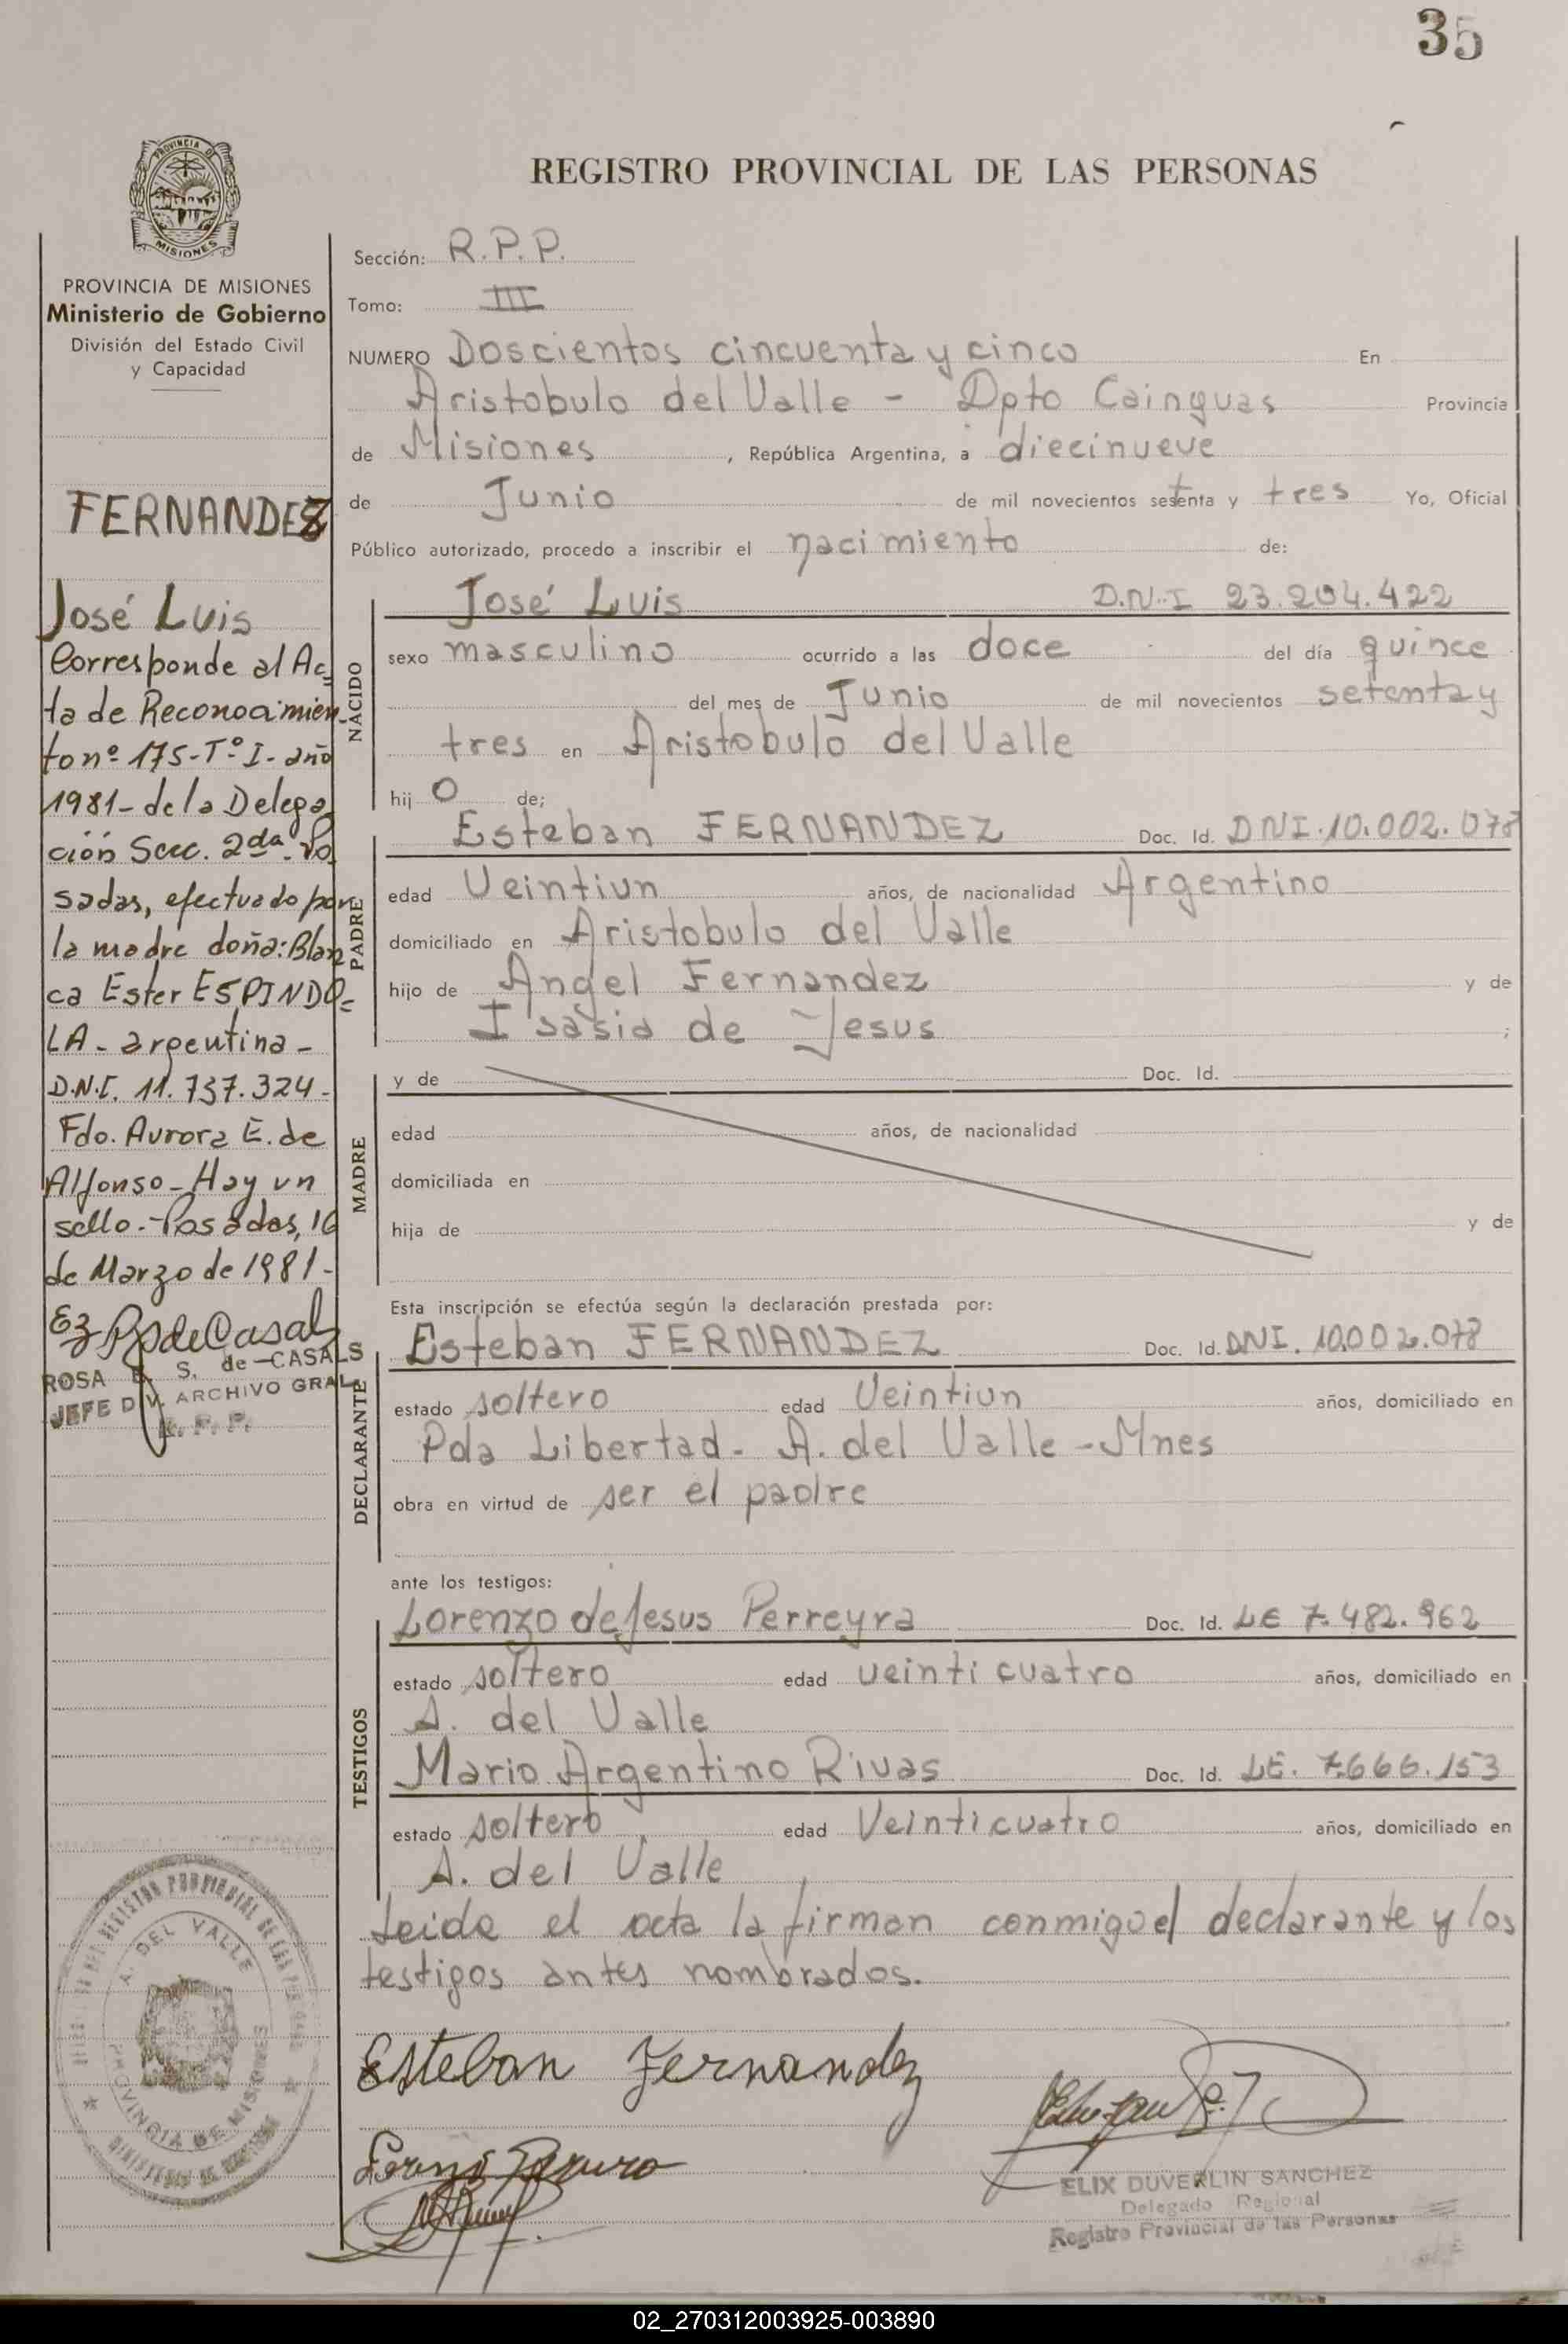 35
REGISTRO PROVINCIAL DE LAS PERSONAS
PROVINCIA DE MISIONES
Ministerio de Gobierno
División del Estado Civil
y Capacidad
FERNANDEZ
José Luis
Corresponde al Ac=
ta de Reconocimien-
to nº 175-Tº I- año
1981- de la Delega
ción Secc. 2da. Po
sadas, efectuado por
la madre doña: Blan
ca Ester ESPINDO=
LA - argentina -
D.N.I. 11.737.324-
Fdo. Aurora E. de
Alfonso - Hay un
sello.- Posadas, 16
de Marzo de 1981-
ROSA S. de CASALS
JEFE DIV. ARCHIVO GRAL.
R. P. P.
Sección: R.P.P.
Tomo: III
NUMERO Doscientos cincuenta y cinco En
Aristobulo del Valle - Dpto Cainguas Provincia
de Misiones, República Argentina, a diecinueve
de Junio de mil novecientos setenta y tres Yo, Oficial
Público autorizado, procedo a inscribir el nacimiento de:
NACIDO
José Luis D.N.I 23.204.422
sexo masculino ocurrido a las doce del día quince
del mes de Junio de mil novecientos setenta y
tres en Aristobulo del Valle
hij o de;
PADRE
Esteban FERNANDEZ Doc. Id. DNI.10.002.078
edad Veintiun años, de nacionalidad Argentino
domiciliado en Aristobulo del Valle
hijo de Angel Fernandez y de
Isasia de Jesus ;
MADRE
y de Doc. Id.
edad años, de nacionalidad
domiciliada en
hija de y de
Esta inscripción se efectúa según la declaración prestada por:
DECLARANTE
Esteban FERNANDEZ Doc. Id. DNI. 10.002.078
estado soltero edad Veintiun años, domiciliado en
Pda Libertad - A. del Valle - Mnes
obra en virtud de ser el padre
ante los testigos:
TESTIGOS
Lorenzo de Jesus Perreyra Doc. Id. LE 7.482.962
estado soltero edad veinticuatro años, domiciliado en
A. del Valle
Mario Argentino Rivas Doc. Id. LE. 7.666.153
estado soltero edad Veinticuatro años, domiciliado en
A. del Valle
Leida el acta la firman conmigo el declarante y los
testigos antes nombrados.
Esteban Fernandez
ELIX DUVERLIN SANCHEZ
Delegado Regional
Registro Provincial de las Personas
A. DEL VALLE
PROVINCIA DE MISIONES
02_270312003925-003890